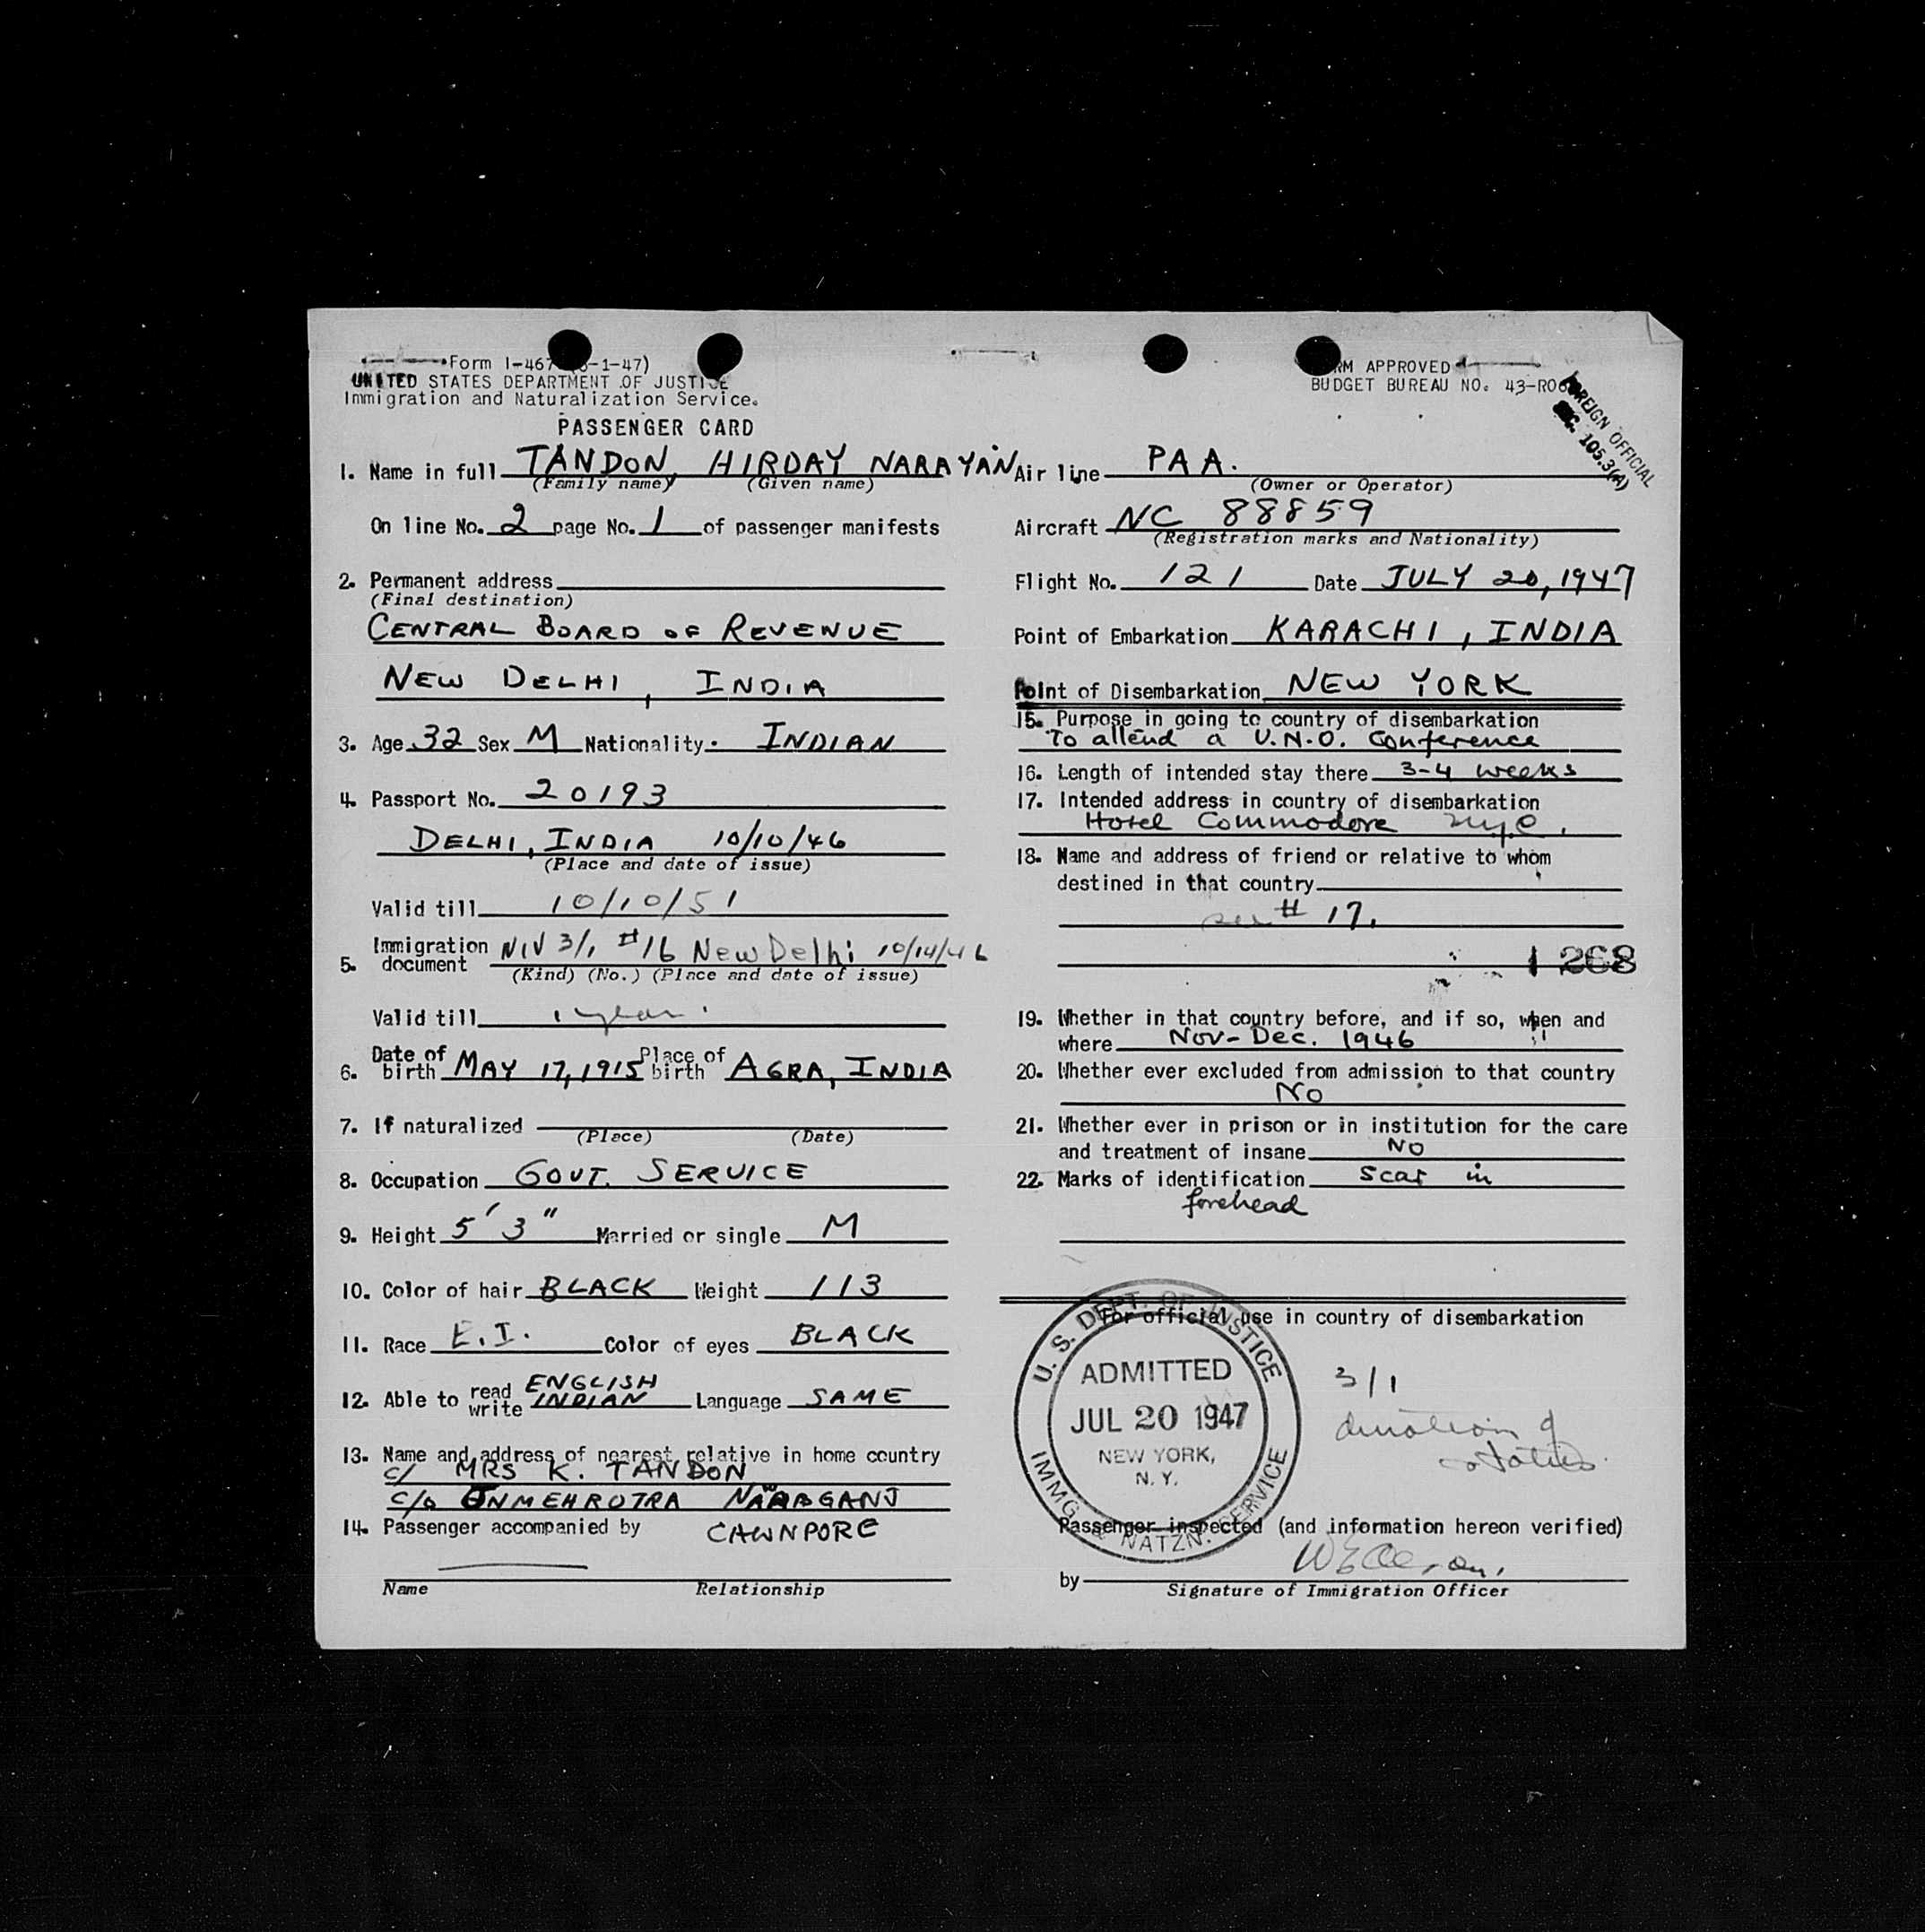 Form I-467 -1-47)
UNITED STATES DEPARTMENT OF JUSTICE
Immigration and Naturalization Service.
PASSENGER CARD
1. Name in full TANDON, HIRDAY NARAYAN
(Family name) (Given name)
On line No. 2 page No. 1 of passenger manifests
2. Permanent address
(Final destination)
CENTRAL BOARD OF REVENUE
NEW DELHI, INDIA
3. Age 32 Sex M Nationality. INDIAN
4. Passport No. 20193
DELHI, INDIA 10/10/46
(Place and date of issue)
Valid till 10/10/51
5. Immigration document NIV 3/1 #16 New Delhi 10/14/46
(Kind) (No.) (Place and date of issue)
Valid till 1 year.
6. Date of birth MAY 17, 1915 Place of birth AGRA, INDIA
7. If naturalized
(Place) (Date)
8. Occupation GOVT. SERVICE
9. Height 5' 3" Married or single M
10. Color of hair BLACK Weight 113
11. Race E.I. Color of eyes BLACK
12. Able to read ENGLISH
write INDIAN Language SAME
13. Name and address of nearest relative in home country
c/ MRS K. TANDON
c/o MEHROTRA
14. Passenger accompanied by CAWNPORE
Name Relationship
RM APPROVED
BUDGET BUREAU NO. 43-R06
FOREIGN OFFICIAL
SEC. 105.3(A)
Air line PAA.
(Owner or Operator)
Aircraft NC 88859
(Registration marks and Nationality)
Flight No. 121 Date JULY 20, 1947
Point of Embarkation KARACHI, INDIA
Point of Disembarkation NEW YORK
15. Purpose in going to country of disembarkation
To attend a U.N.O. Conference
16. Length of intended stay there 3-4 weeks
17. Intended address in country of disembarkation
Hotel Commodore nyc.
18. Name and address of friend or relative to whom
destined in that country
see # 17.
1 268
19. Whether in that country before, and if so, when and
where Nov-Dec. 1946
20. Whether ever excluded from admission to that country
No
21. Whether ever in prison or in institution for the care
and treatment of insane No
22. Marks of identification scar in
forehead
For official use in country of disembarkation
U.S. DEPT. OF JUSTICE
ADMITTED
JUL 20 1947
NEW YORK,
N. Y.
IMMG. & NATZN. SERVICE
3/1
duration of
status.
Passenger inspected (and information hereon verified)
by
Signature of Immigration Officer